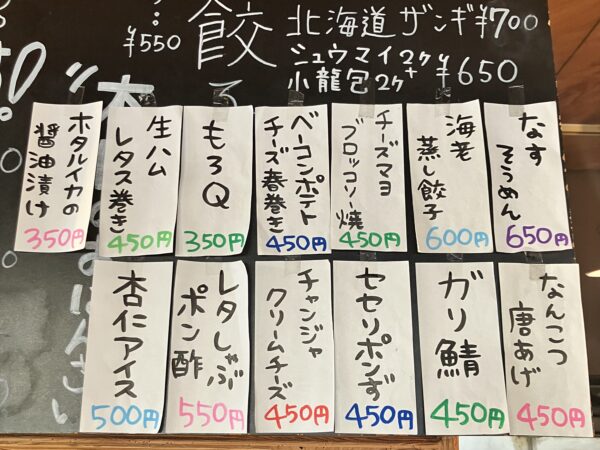 ¥550
餃
北海道ザンギ¥700
シュウマイ2ケ
小龍包2ケ
¥650
なす
そうめん
650円
海老
蒸し餃子
600円
チーズマヨ
ブロッコリー焼
450円
ベーコンポテト
チーズ春巻き
450円
もろQ
350円
生ハム
レタス巻き
450円
ホタルイカの
醤油漬け
350円
なんこつ
唐あげ
450円
ガリ鯖
450円
セセリポンず
450円
チャンジャ
クリームチーズ
450円
レタしゃぶ
ポン酢
550円
杏仁アイス
500円